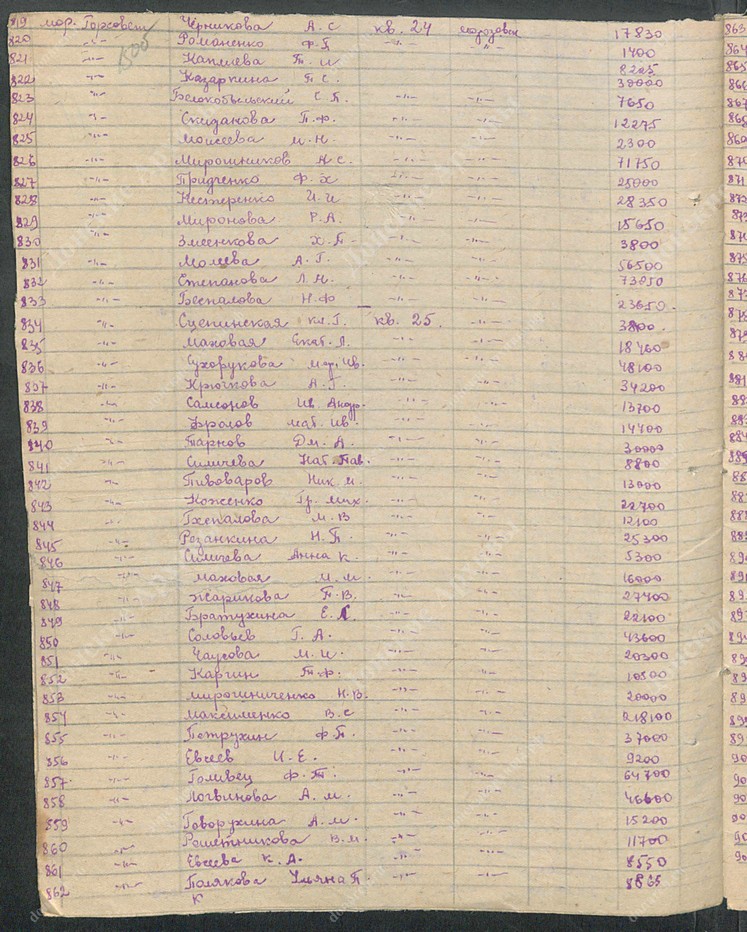 819 мор. Горсовет Черникова А.С кв. 24 морозовск 17830
820 -"- Романенко Ф.П -"- -"- 1400
821 -"- Каплева Т.И 8225
822 -"- Казаркина П.С. 30000
823 -"- Белокобыльский С.П. -"- -"- 7650
824 -"- Скиданова П.Ф. -"- -"- 12275
825 -"- Моисеева М.Н. -"- -"- 2300
826 -"- Мирошников Н С. -"- -"- 71750
827 -"- Придченко Ф.Х -"- -"- 25000
828 -"- Нестеренко И.И -"- -"- 28350
829 -"- Миронова Р.А. -"- -"- 15650
830 -"- Змеенкова Х.П- -"- -"- 3800
831 -"- Молева А.Г. -"- -"- 56500
832 -"- Степанова Л.Н. -"- -"- 73850
833 -"- Беспалова Н.Ф -"- 23650.
834 -"- Сцепинская Кл.Г. кв. 25. -"- 3800
835 -"- Маховая Екат.Л. -"- -"- 18400
836 -"- Сухорукова Мар.Ив. -"- -"- 48100
837 -"- Крючкова А.Г. -"- -"- 34200
838 -"- Самсонов Ив. Андр. -"- -"- 13700
839 -"- Фролов Мат. Ив. -"- -"- 14400
840 -"- Тарнов Дм. А. -"- -"- 30000
841 -"- Симичева Нат. Пав. -"- -"- 8800
842 -"- Пивоваров Ник. М. -"- -"- 13000
843 -"- Коженко Гр. Мих. -"- -"- 22700
844 -"- М.В -"- -"- 12100
845 -"- Розанкина Н.П. -"- -"- 25300
846 -"- Симичева Анна К. -"- -"- 5300
847 -"- Маховая М.М. -"- -"- 16000
848 -"- Жарикова П.В. -"- -"- 27400
849 -"- Братухина Е.Л. -"- -"- 22100
850 -"- Соловьев Г.А. -"- -"- 43600
851 -"- Чаусова М.И. -"- -"- 20300
852 -"- Каргин Т.Ф. -"- -"- 10500
853 -"- Мирошниченко Н.В. -"- -"- 20000
854 -"- Максименко В.С -"- -"- 218100
855 -"- Петрухин Ф.П. -"- -"- 37000
856 -"- Евсеев И.Е. -"- -"- 9200
857 -"- Голивец Ф.Т. -"- -"- 64700
858 -"- Логвинова А.М. -"- 46600
859 -"- Говорухина А.М. -"- -"- 15200
860 -"- Решетникова В.М. -"- -"- 11700
861 -"- Евсеева К.А. -"- -"- 8550
862 -"- Полякова Ульяна П. -"- -"- 8865
К